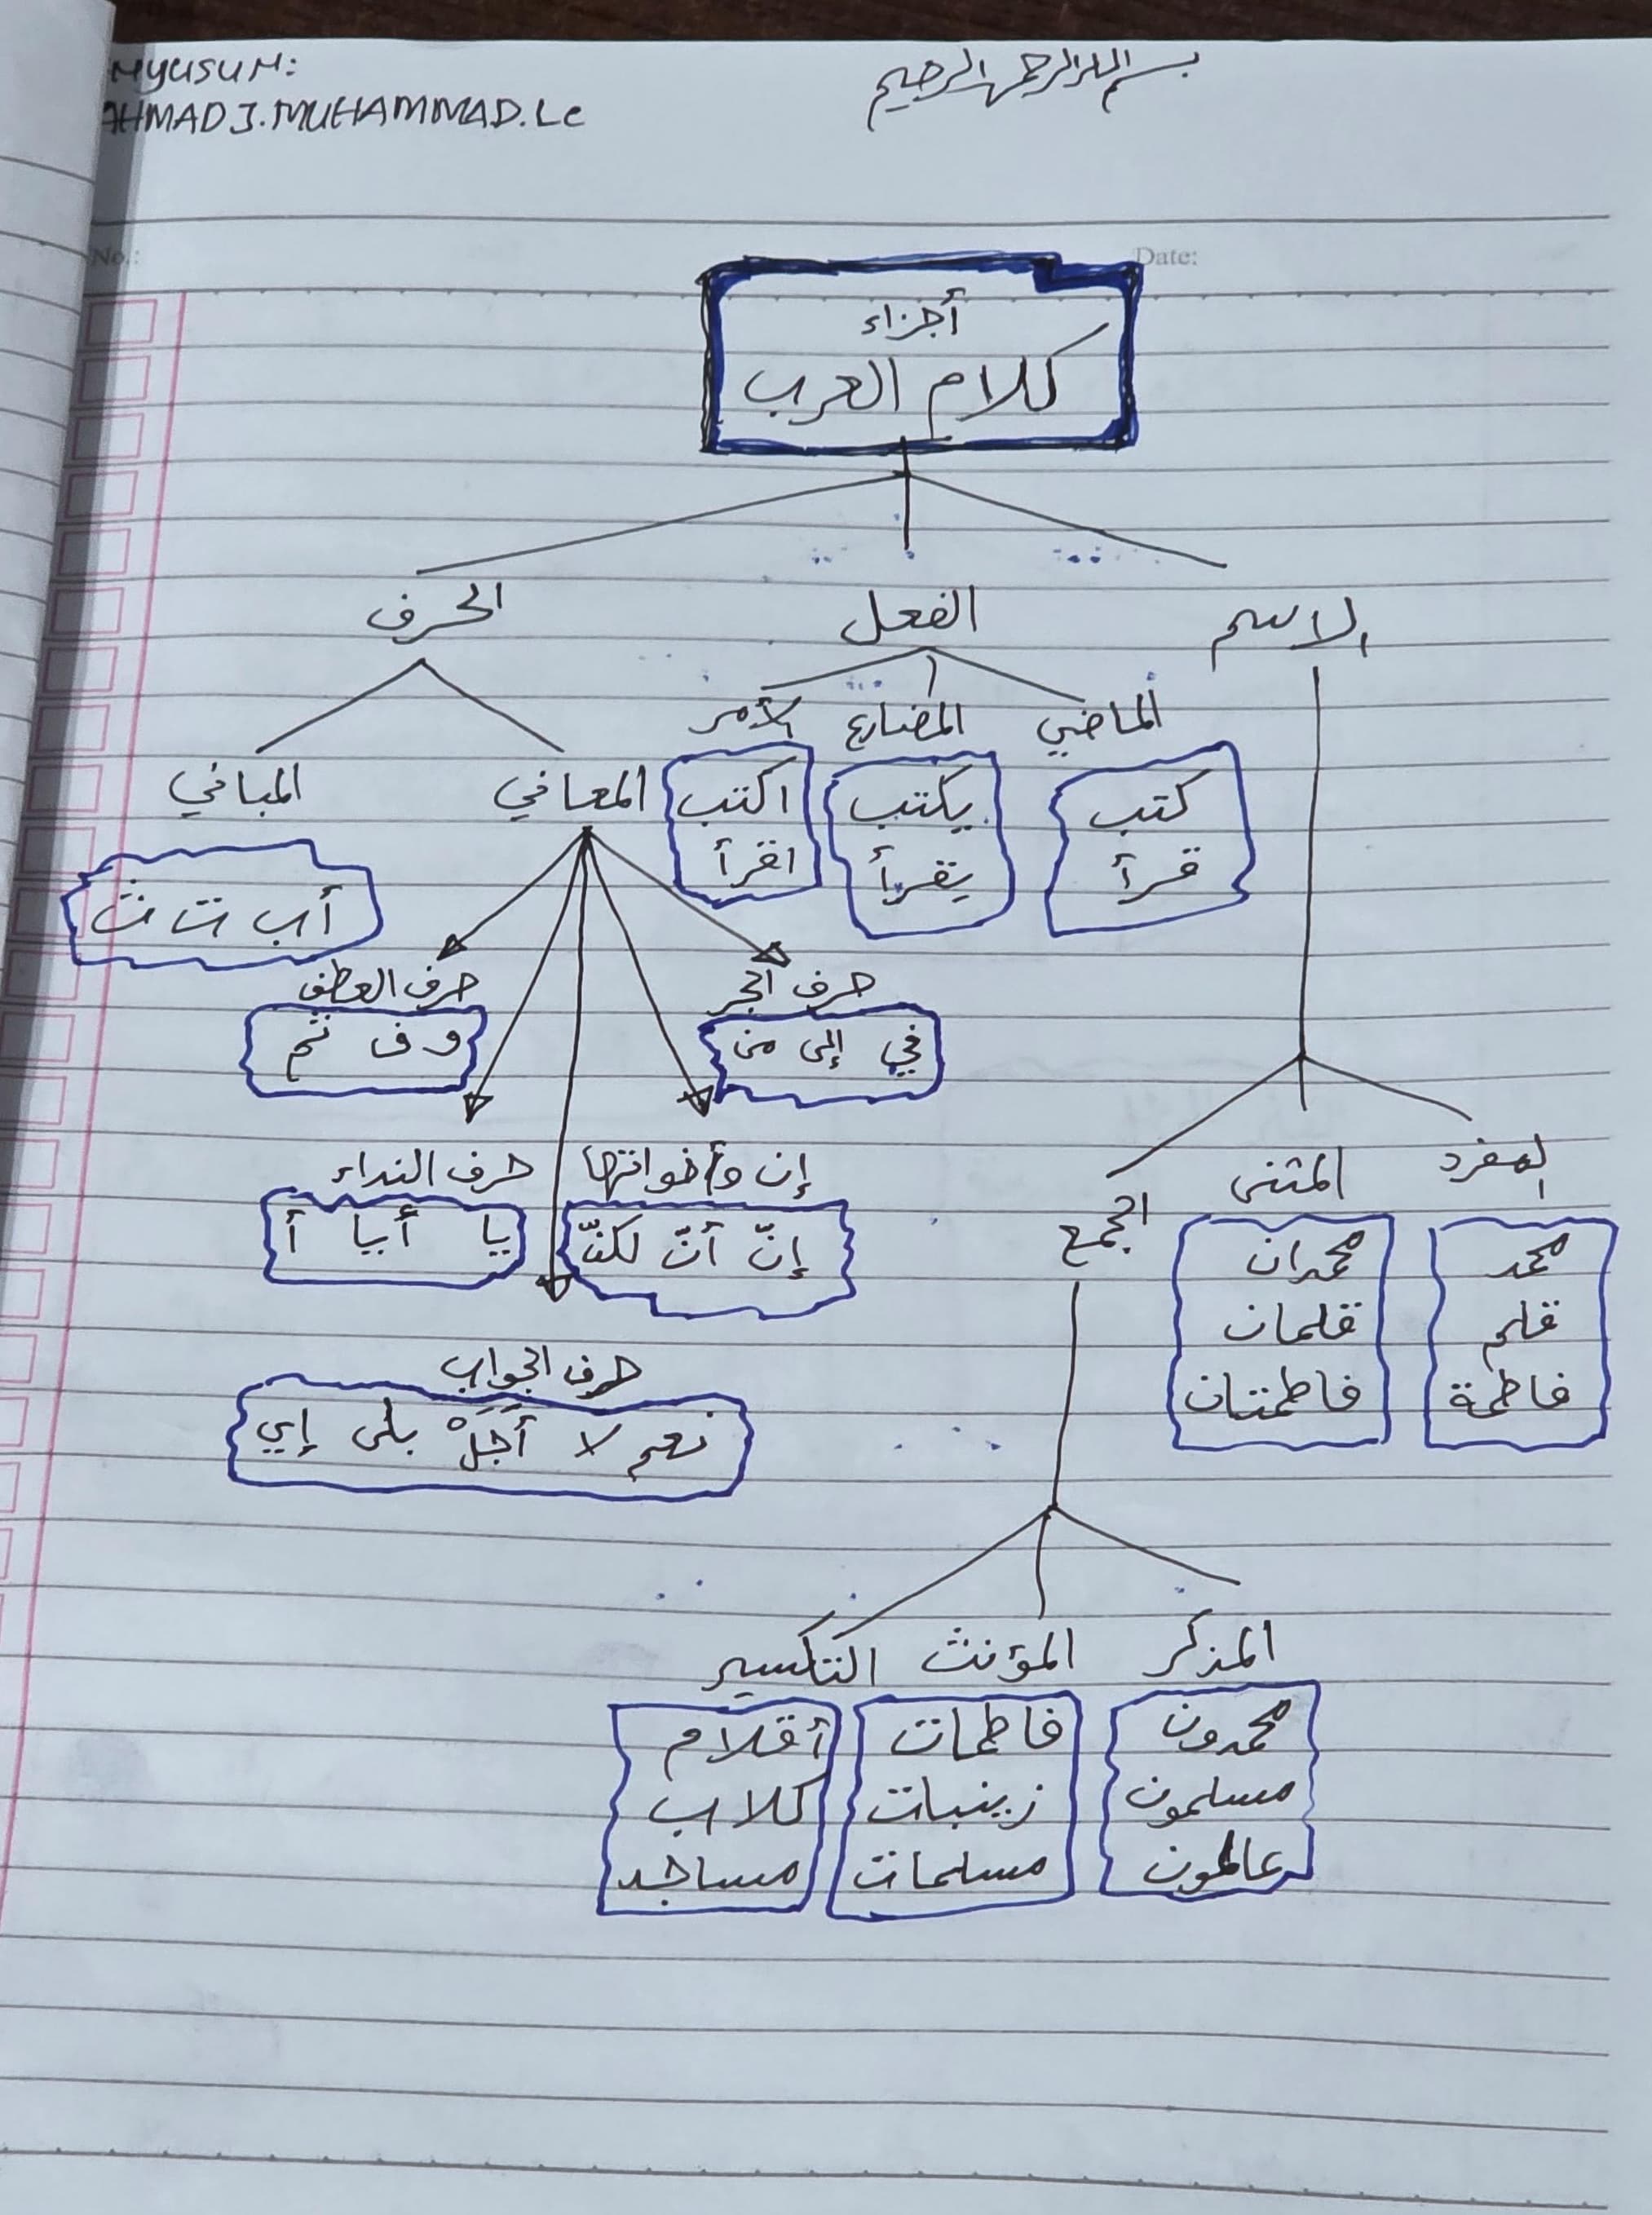 بسم الله الرحمن الرحيم
nyusun:
AHMAD J. MUHAMMAD. Lc
No.:
Date:
أجزاء
كلام العرب
الاسم
الفعل
الحرف
الماضي
المضارع
الأمر
كتب
قرأ
يكتب
يقرأ
اكتب
اقرأ
المعاني
المباني
أ ب ت ث
حرف الجر
في إلى من
حرف العطف
و ف ثم
إن وأخواتها
إنّ أنّ لكنّ
حرف النداء
يا أيا أ
حرف الجواب
نعم لا أَجَلْ بلى إي
المفرد
المثنى
الجمع
محمد
قلم
فاطمة
محمدان
قلمان
فاطمتان
المذكر
المؤنث
التكسير
محمدون
مسلمون
عالمون
فاطمات
زينبات
مسلمات
أقلام
كلاب
مساجد